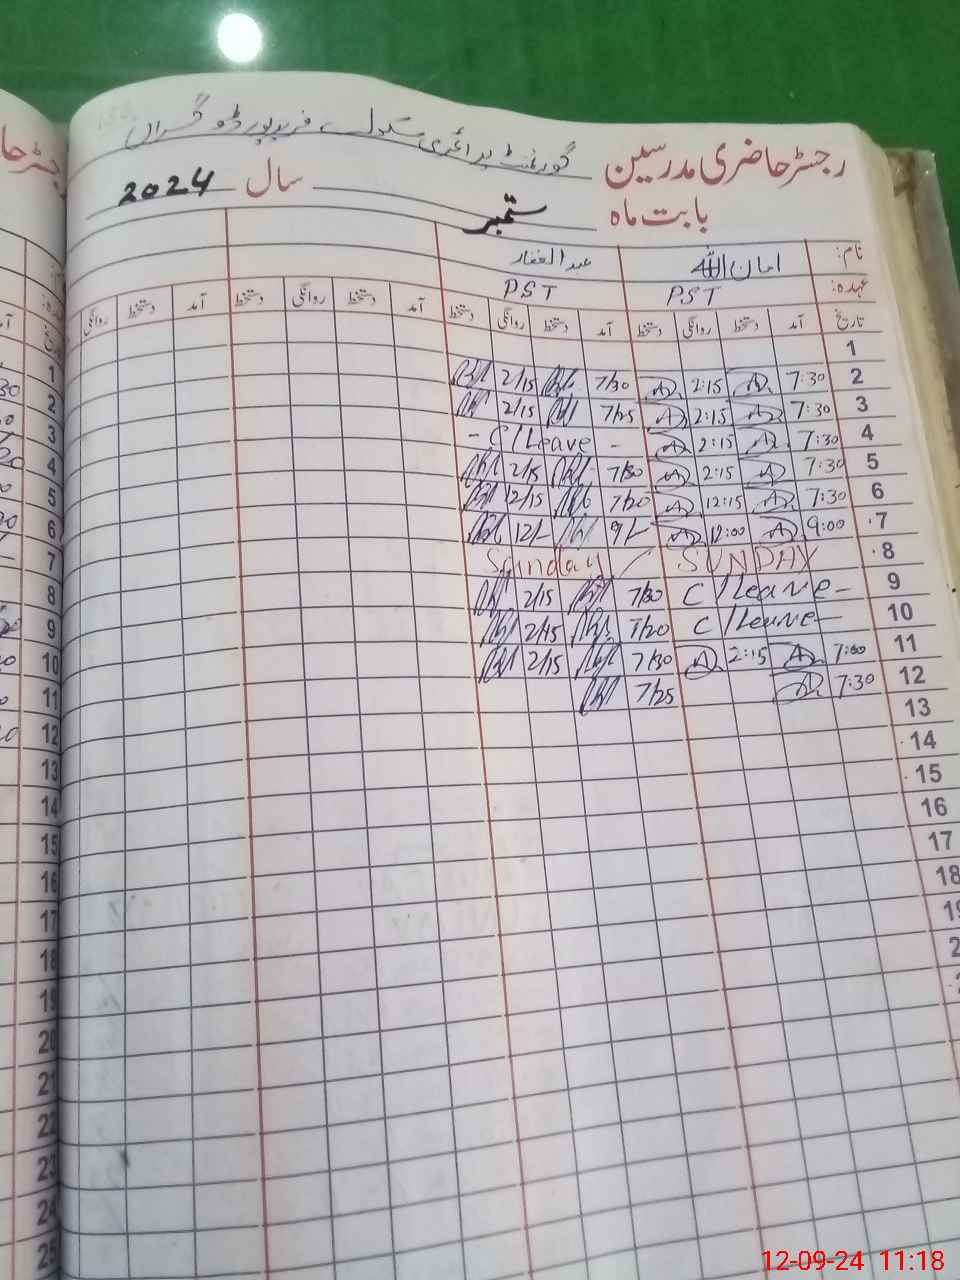 گورنمنٹ پرائمری سکول فریدپور ڈوگراں
رجسٹر حاضری مدرسین
بابت ماہ ستمبر سال 2024
نام: امان اللہ عبدالغفار
عہدہ: PST PST
تاریخ آمد دستخط روانگی دستخط آمد دستخط روانگی دستخط آمد دستخط روانگی دستخط آمد دستخط روانگی
1
2 7:30 2:15 7/30 2/15
3 7:30 2:15 7/25 2/15
4 7:30 2:15 - C/Leave -
5 7:30 2:15 7/30 2/15
6 7:30 12:15 7/20 12/15
7 9:00 12:00 9/- 12/-
8 SUNDAY Sunday
9 C/Leave- 7/30 2/15
10 C/Leave- 7/20 2/15
11 7:00 2:15 7/30 2/15
12 7:30 7/25
13
14
15
16
17
18
1
2
3
4
5
6
7
8
9
10
11
12
13
14
15
16
17
18
19
20
21
22
23
24
25
12-09-24 11:18